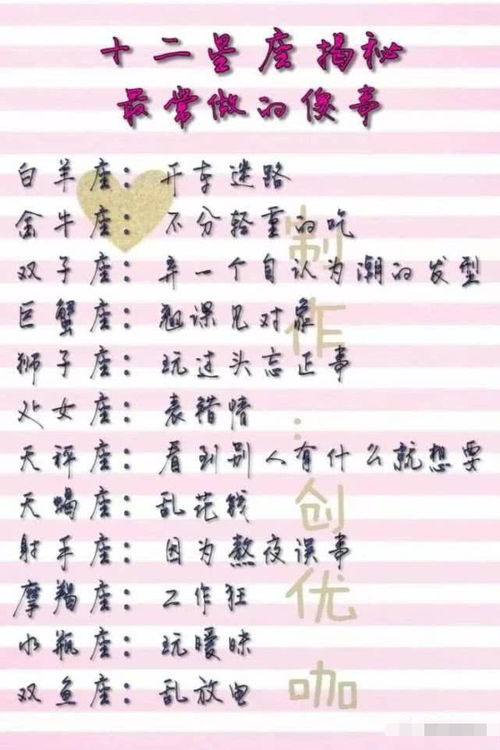 十二星座揭秘
最常做的傻事
白羊座：开车迷路
金牛座：不分轻重的吃
双子座：弄一个自认为潮的发型
巨蟹座：翘课见对象
狮子座：玩过头忘正事
处女座：表错情
天秤座：看到别人有什么就想要
天蝎座：乱花钱
射手座：因为熬夜误事
摩羯座：工作狂
水瓶座：玩暧昧
双鱼座：乱放电
制作：创优咖